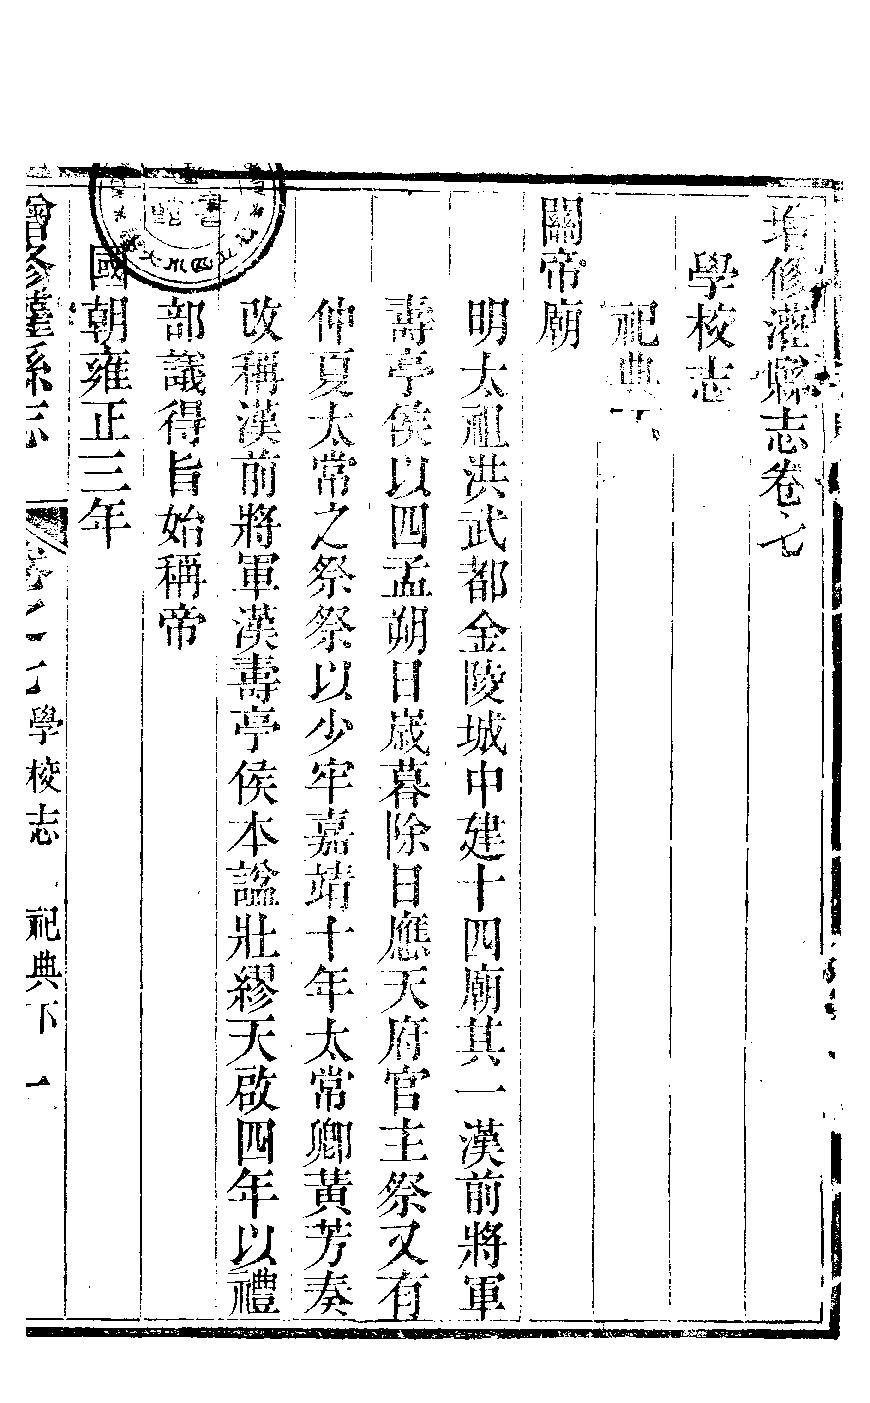 增修灌縣志卷七
學校志
祀典下
關帝廟
明太祖洪武都金陵城中建十四廟其一漢前將軍
壽亭侯以四孟朔日歲暮除日應天府官主祭又有
仲夏太常之祭祭以少牢嘉靖十年太常卿黃芳奏
改稱漢前將軍漢壽亭侯本諡壯繆天啟四年以禮
部議得旨始稱帝
國朝雍正三年
增修灌縣志 卷之七 學校志 祀典下 一